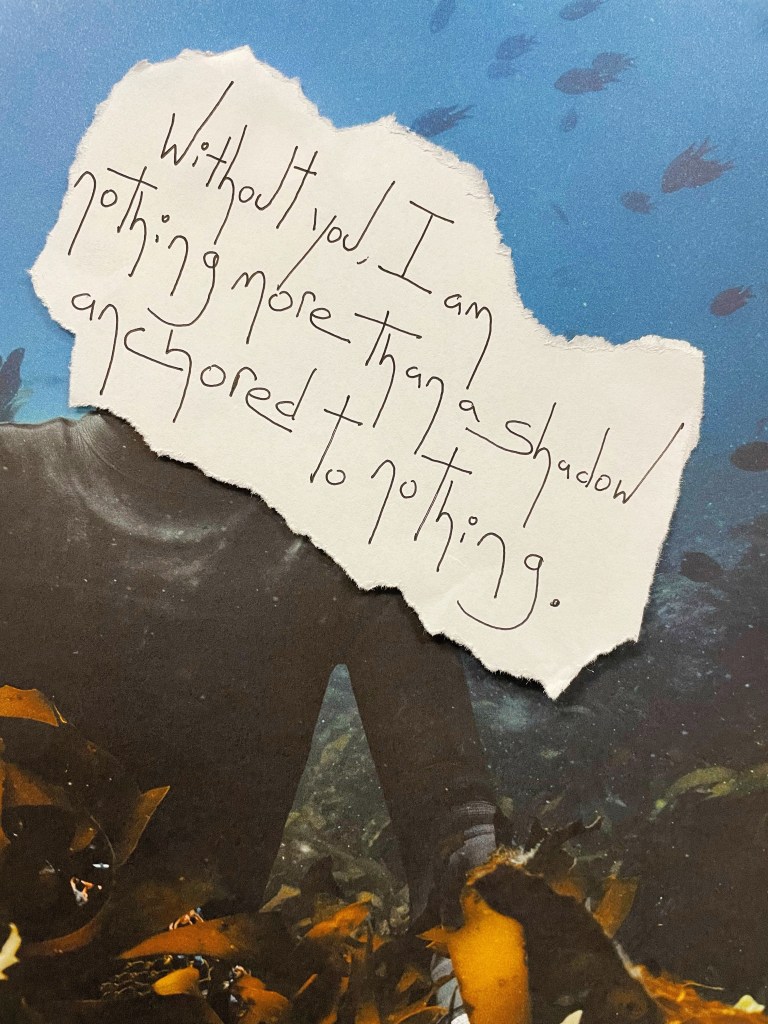 Without you, I am
nothing more than a shadow
anchored to nothing.